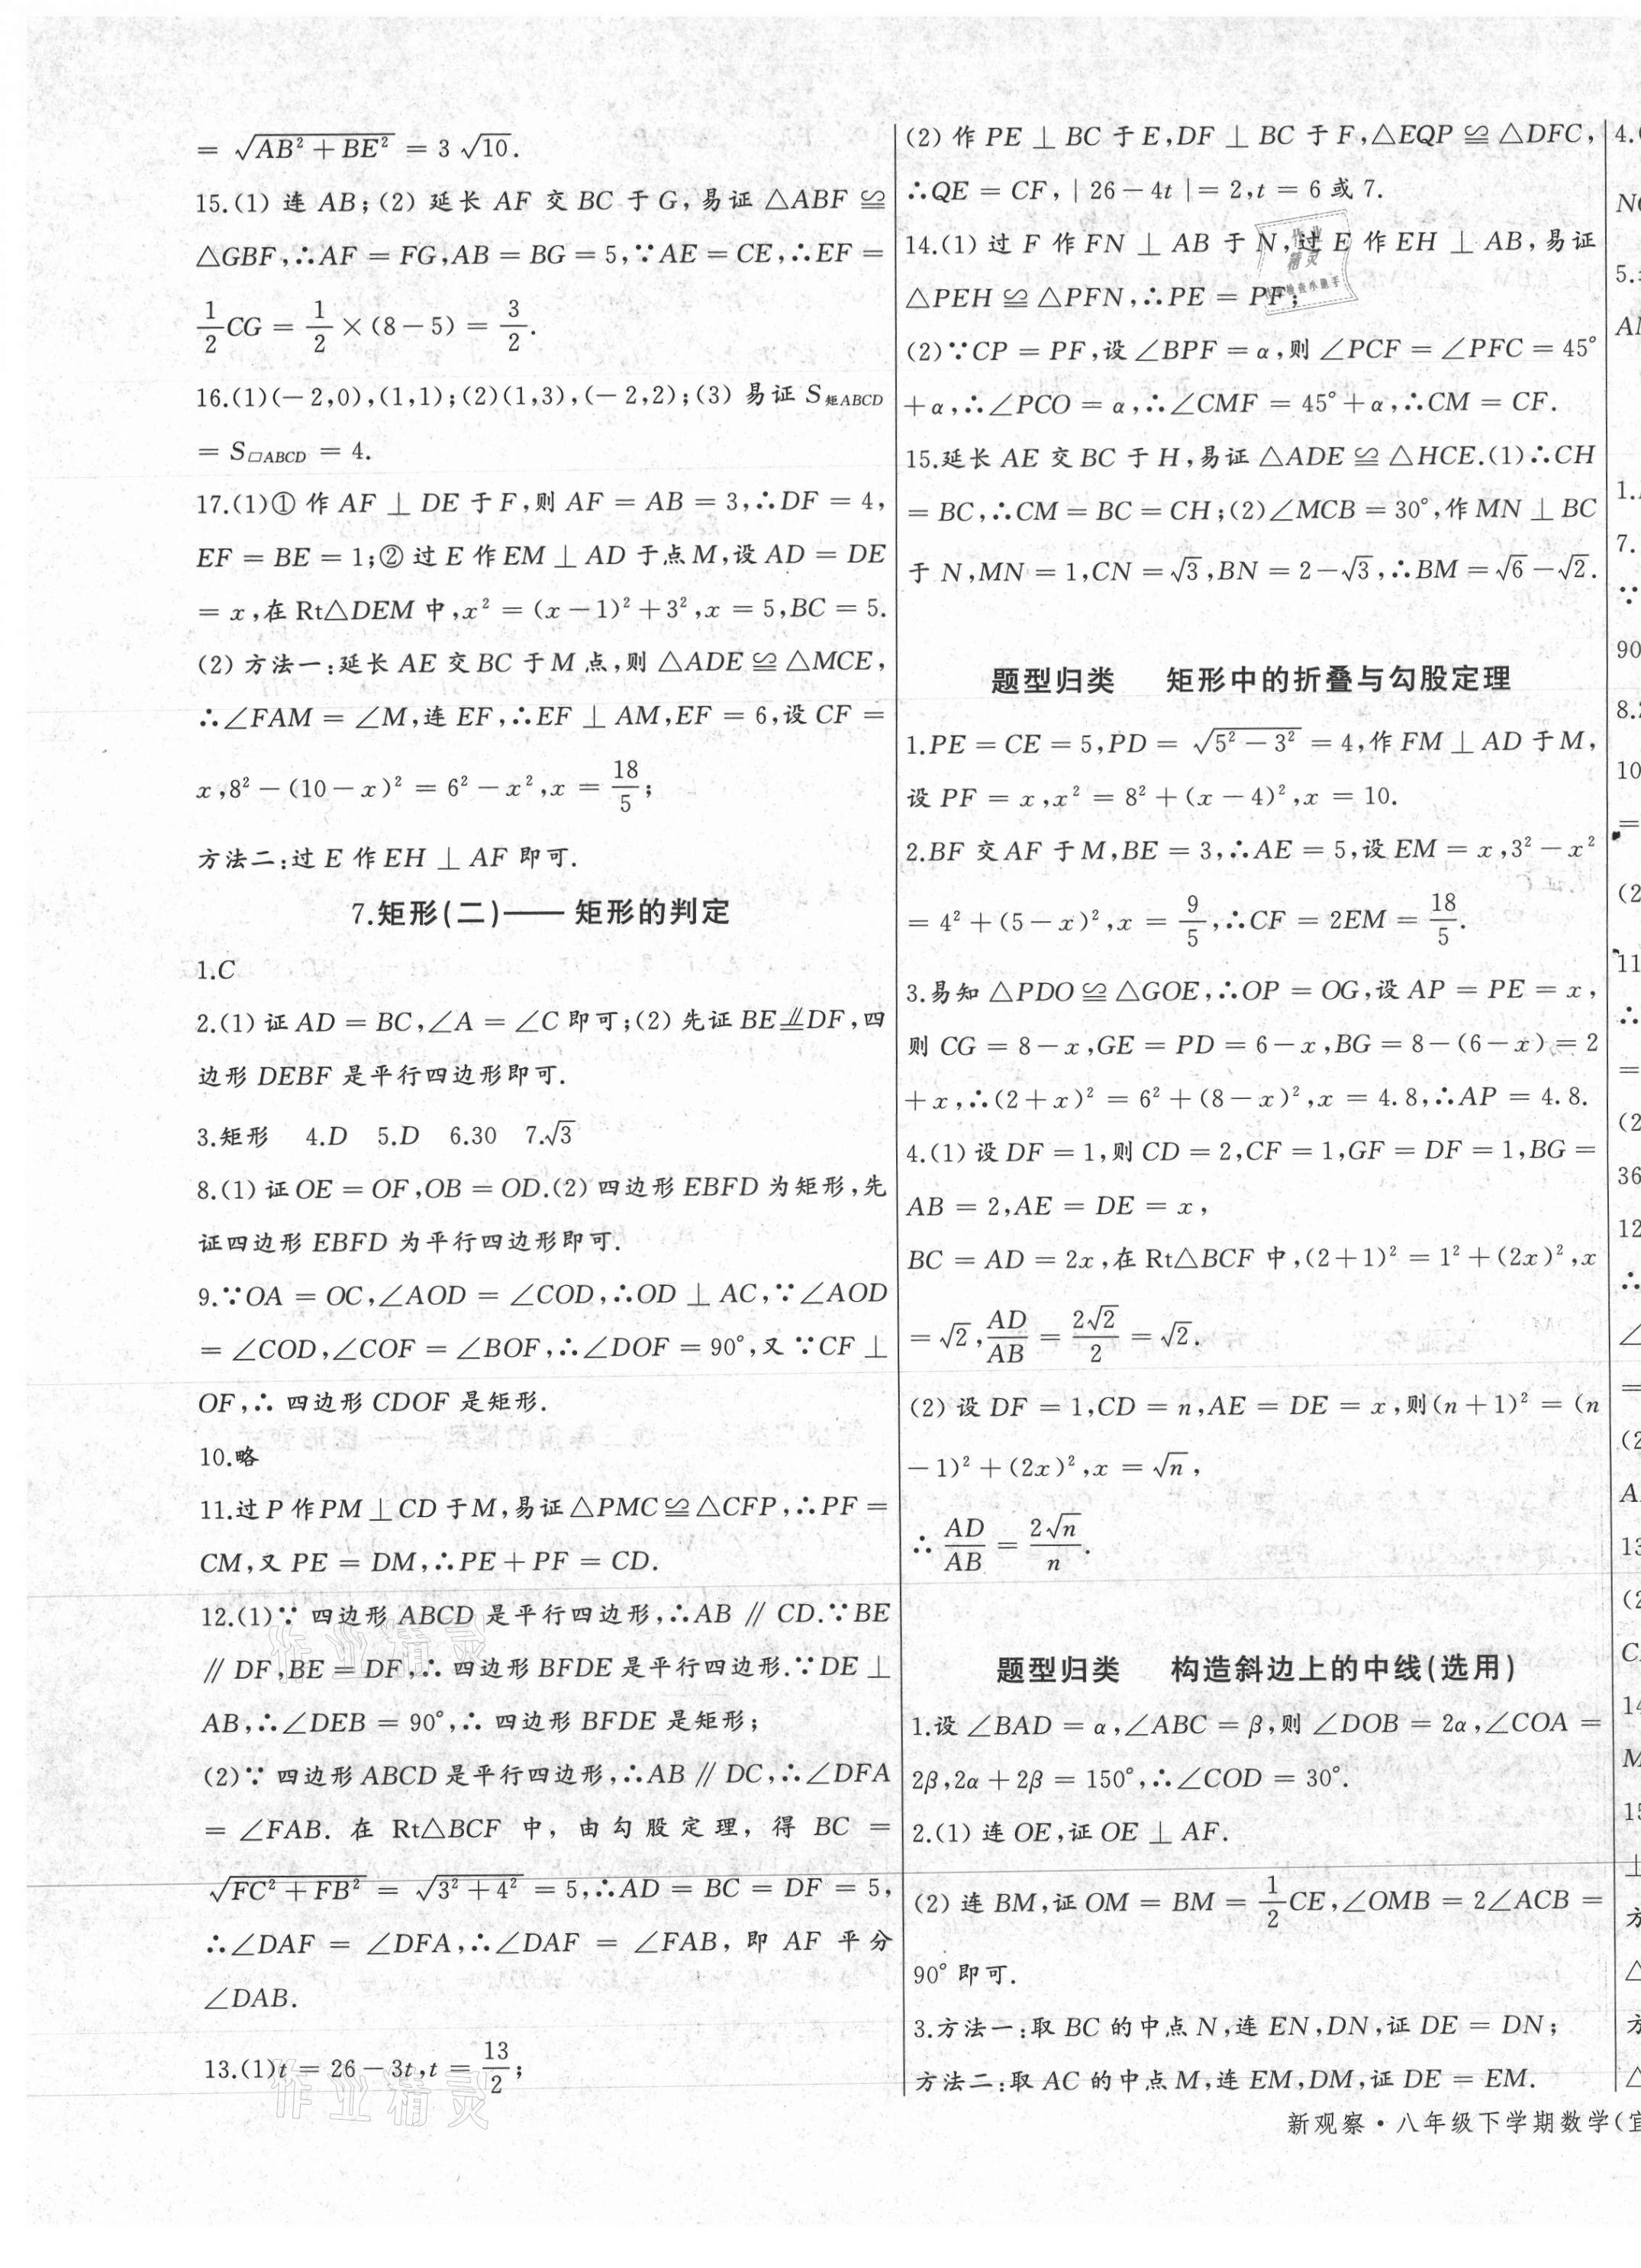 = √(AB² + BE²) = 3 √10.
15.(1) 连 AB; (2) 延长 AF 交 BC 于 G, 易证 △ABF ≌
△GBF,∴AF = FG,AB = BG = 5,∵AE = CE,∴EF =
1/2 CG = 1/2 ×(8－5) = 3/2.
16.(1)(－2,0),(1,1);(2)(1,3),(－2,2);(3) 易证 S矩ABCD
= S▱ABCD = 4.
17.(1)① 作 AF ⊥ DE 于 F,则 AF = AB = 3,∴DF = 4,
EF = BE = 1;② 过 E 作 EM ⊥ AD 于点 M,设 AD = DE
= x,在 Rt△DEM 中,x² = (x－1)²＋3²,x = 5,BC = 5.
(2) 方法一:延长 AE 交 BC 于 M 点,则 △ADE ≌ △MCE,
∴∠FAM = ∠M,连 EF,∴EF ⊥ AM,EF = 6,设 CF =
x,8²－(10－x)² = 6²－x²,x = 18/5;
方法二:过 E 作 EH ⊥ AF 即可.
7.矩形(二)—— 矩形的判定
1.C
2.(1) 证 AD = BC,∠A = ∠C 即可;(2) 先证 BE⫫DF,四
边形 DEBF 是平行四边形即可.
3.矩形 4.D 5.D 6.30 7.√3
8.(1) 证 OE = OF,OB = OD.(2) 四边形 EBFD 为矩形,先
证四边形 EBFD 为平行四边形即可.
9.∵OA = OC,∠AOD = ∠COD,∴OD ⊥ AC,∵∠AOD
= ∠COD,∠COF = ∠BOF,∴∠DOF = 90°,又 ∵CF ⊥
OF,∴ 四边形 CDOF 是矩形.
10.略
11.过 P 作 PM ⊥ CD 于 M,易证 △PMC ≌ △CFP,∴PF =
CM,又 PE = DM,∴PE＋PF = CD.
12.(1)∵ 四边形 ABCD 是平行四边形,∴AB ∥ CD.∵BE
∥ DF,BE = DF,∴ 四边形 BFDE 是平行四边形.∵DE ⊥
AB,∴∠DEB = 90°,∴ 四边形 BFDE 是矩形;
(2)∵ 四边形 ABCD 是平行四边形,∴AB ∥ DC,∴∠DFA
= ∠FAB. 在 Rt△BCF 中, 由勾股定理, 得 BC =
√(FC² + FB²) = √(3² + 4²) = 5,∴AD = BC = DF = 5,
∴∠DAF = ∠DFA,∴∠DAF = ∠FAB, 即 AF 平分
∠DAB.
13.(1)t = 26－3t,t = 13/2;
(2) 作 PE ⊥ BC 于 E,DF ⊥ BC 于 F,△EQP ≌ △DFC,
∴QE = CF,| 26－4t |= 2,t = 6 或 7.
14.(1) 过 F 作 FN ⊥ AB 于 N,过 E 作 EH ⊥ AB,易证
△PEH ≌ △PFN,∴PE = PF;
(2)∵CP = PF,设 ∠BPF = α,则 ∠PCF = ∠PFC = 45°
＋α,∴∠PCO = α,∴∠CMF = 45°＋α,∴CM = CF.
15.延长 AE 交 BC 于 H,易证 △ADE ≌ △HCE.(1)∴CH
= BC,∴CM = BC = CH;(2)∠MCB = 30°,作 MN ⊥ BC
于 N,MN = 1,CN = √3,BN = 2－√3,∴BM = √6－√2.
题型归类 矩形中的折叠与勾股定理
1.PE = CE = 5,PD = √(5² － 3²) = 4,作 FM ⊥ AD 于 M,
设 PF = x,x² = 8²＋(x－4)²,x = 10.
2.BF 交 AF 于 M,BE = 3,∴AE = 5,设 EM = x,3²－x²
= 4²＋(5－x)²,x = 9/5,∴CF = 2EM = 18/5.
3.易知 △PDO ≌ △GOE,∴OP = OG,设 AP = PE = x,
则 CG = 8－x,GE = PD = 6－x,BG = 8－(6－x) = 2
＋x,∴(2＋x)² = 6²＋(8－x)²,x = 4.8,∴AP = 4.8.
4.(1) 设 DF = 1,则 CD = 2,CF = 1,GF = DF = 1,BG =
AB = 2,AE = DE = x,
BC = AD = 2x,在 Rt△BCF 中,(2＋1)² = 1²＋(2x)²,x
= √2,AD/AB = 2√2/2 = √2.
(2) 设 DF = 1,CD = n,AE = DE = x,则(n＋1)² = (n
－1)²＋(2x)²,x = √n,
∴ AD/AB = 2√n/n.
题型归类 构造斜边上的中线(选用)
1.设 ∠BAD = α,∠ABC = β,则 ∠DOB = 2α,∠COA =
2β,2α＋2β = 150°,∴∠COD = 30°.
2.(1) 连 OE,证 OE ⊥ AF.
(2) 连 BM,证 OM = BM = 1/2 CE,∠OMB = 2∠ACB =
90° 即可.
3.方法一:取 BC 的中点 N,连 EN,DN,证 DE = DN;
方法二:取 AC 的中点 M,连 EM,DM,证 DE = EM.
新观察·八年级下学期数学(宜
作业精灵
作业精灵